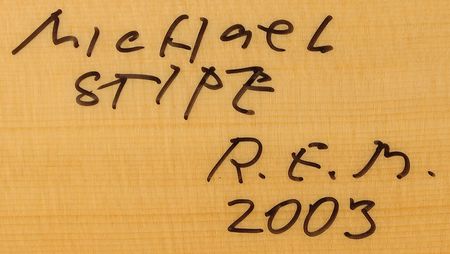 MicHaeL
STIPE
R.E.M.
2003